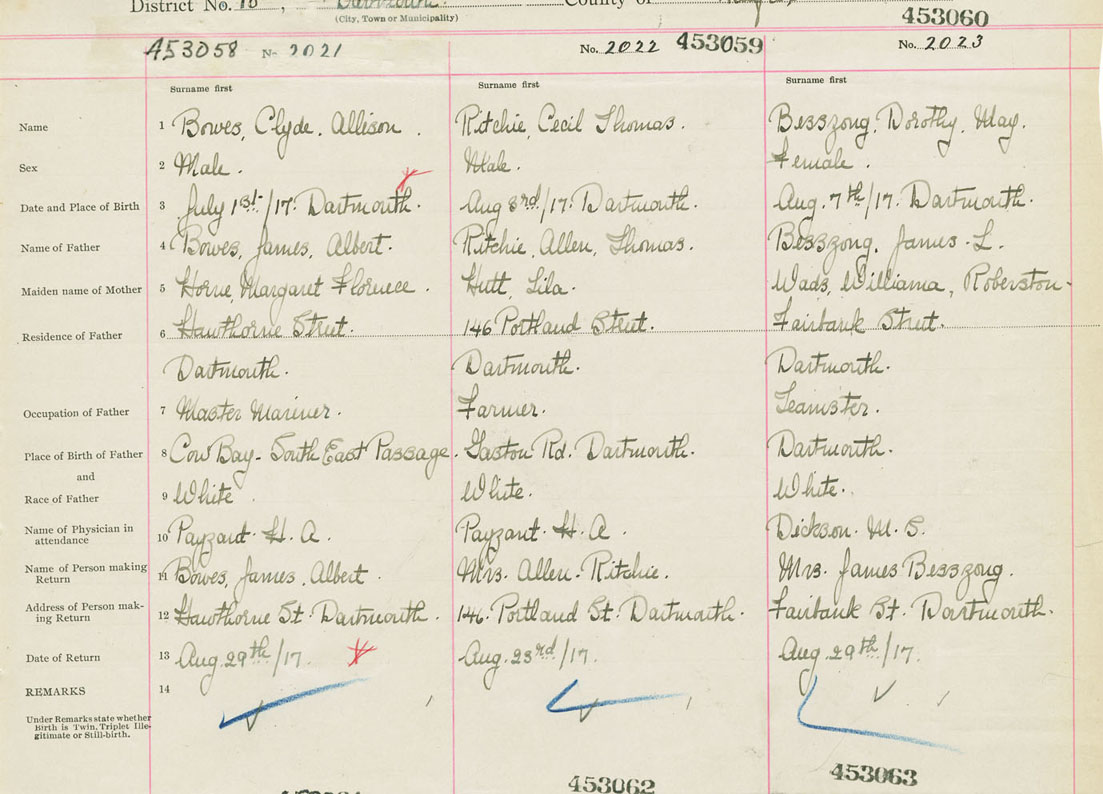 District No. 18, Dartmouth. County of
(City, Town or Municipality)
453060
453058 No 2021
No. 2022 453059
No. 2023
Surname first Surname first Surname first
Name 1 Bowes, Clyde. Allison. Ritchie, Cecil Thomas. Besszong, Dorothy, May.
Sex 2 Male. Male. Female.
Date and Place of Birth 3 July 1st/17. Dartmouth. Aug 3rd/17. Dartmouth. Aug. 7th/17. Dartmouth.
Name of Father 4 Bowes, James, Albert. Ritchie, Allen, Thomas. Besszong, James. L.
Maiden name of Mother 5 Horne, Margaret Florence. Hutt, Lila. Wads, Williama, Roberston-
Residence of Father 6 Hawthorne Street. 146 Portland Street. Fairbank Street.
Dartmouth. Dartmouth. Dartmouth.
Occupation of Father 7 Master Mariner. Farmer. Teamster.
Place of Birth of Father 8 Cow Bay - South East Passage. Gaston Rd. Dartmouth. Dartmouth.
and
Race of Father 9 White White. White.
Name of Physician in
attendance 10 Payzant. H. A. Payzant. H. A Dickson. M. S.
Name of Person making
Return 11 Bowes, James, Albert. Mrs. Allen. Ritchie. Mrs. James Besszong.
Address of Person mak-
ing Return 12 Hawthorne St. Dartmouth. 146. Portland St. Dartmouth. Fairbank St. Dartmouth.
Date of Return 13 Aug. 29th/17. Aug. 23rd/17. Aug. 29th/17.
REMARKS 14
Under Remarks state whether
Birth is Twin, Triplet Ille-
gitimate or Still-birth.
453062
453063